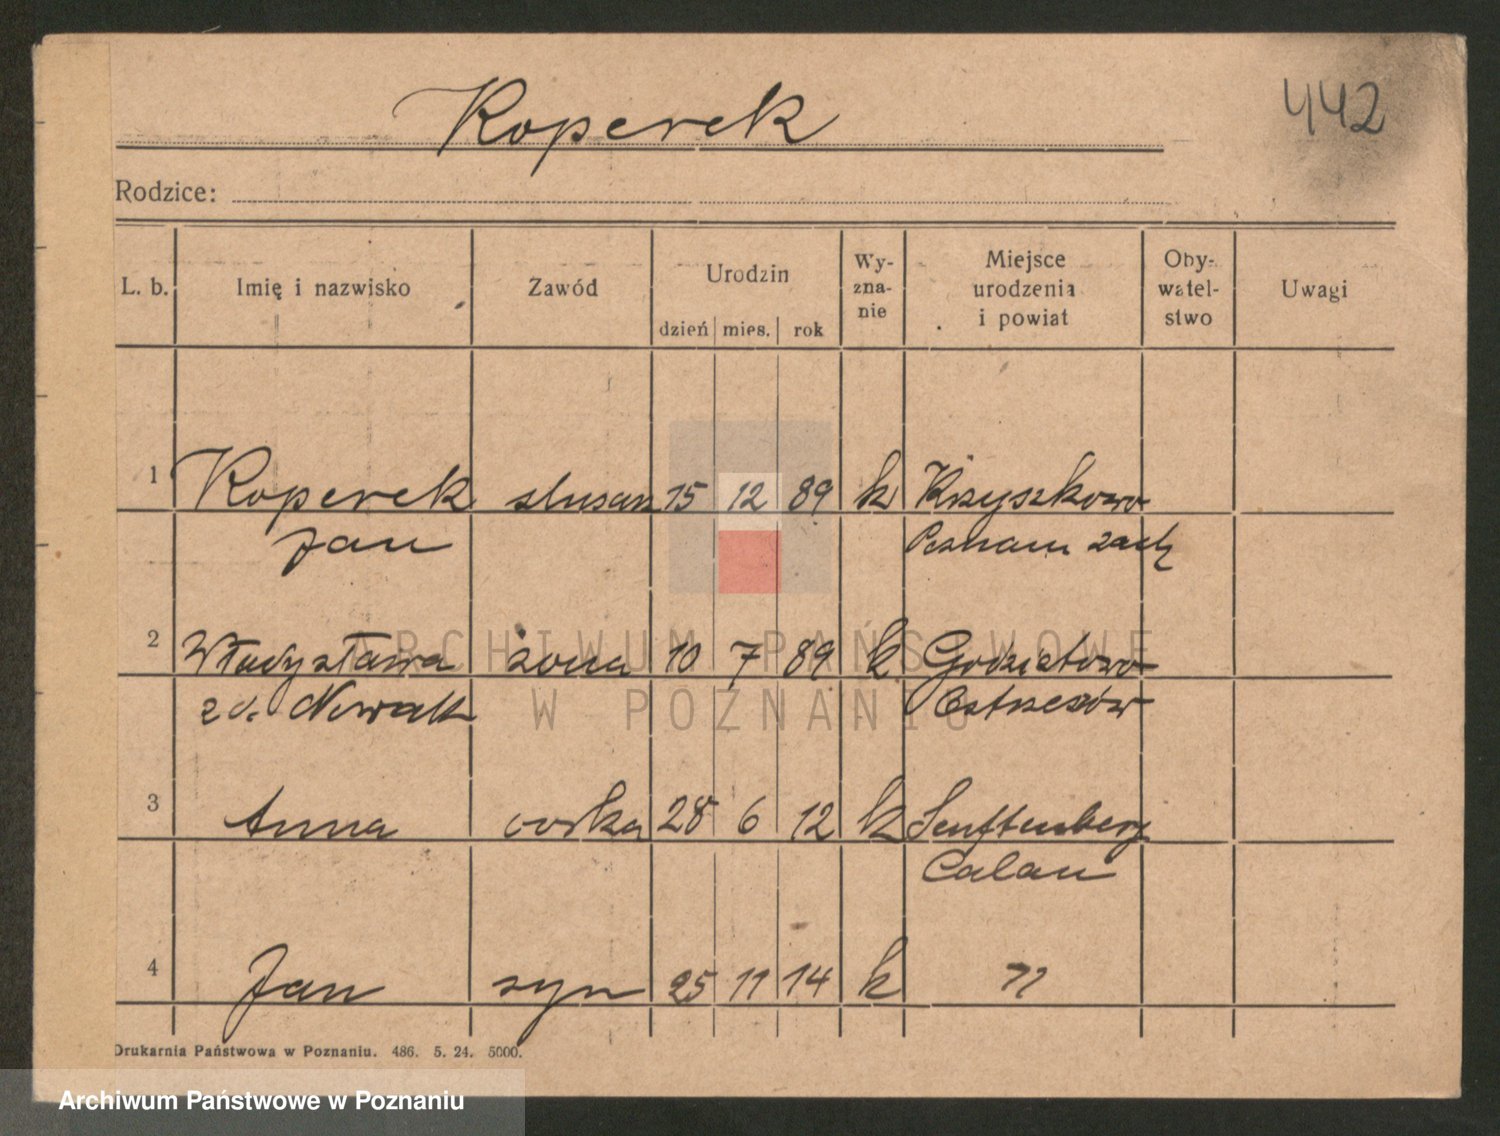 Koperek
442
Rodzice:
L. b. Imię i nazwisko Zawód Urodzin dzień mies. rok Wy-zna-nie Miejsce urodzenia i powiat Oby-watel-stwo Uwagi
1 Koperek ślusarz 15 12 89 k Krzyszkowo
Jan Poznam zach
2 Władysława żona 10 7 89 k Godziętowo
zd. Nowak Ostrzeszów
3 Anna córka 28 6 12 k Senftenberg
Calau
4 Jan syn 25 11 14 k "
Drukarnia Państwowa w Poznaniu. 486. 5. 24. 5000.
ARCHIWUM PAŃSTWOWE
W POZNANIU
Archiwum Państwowe w Poznaniu